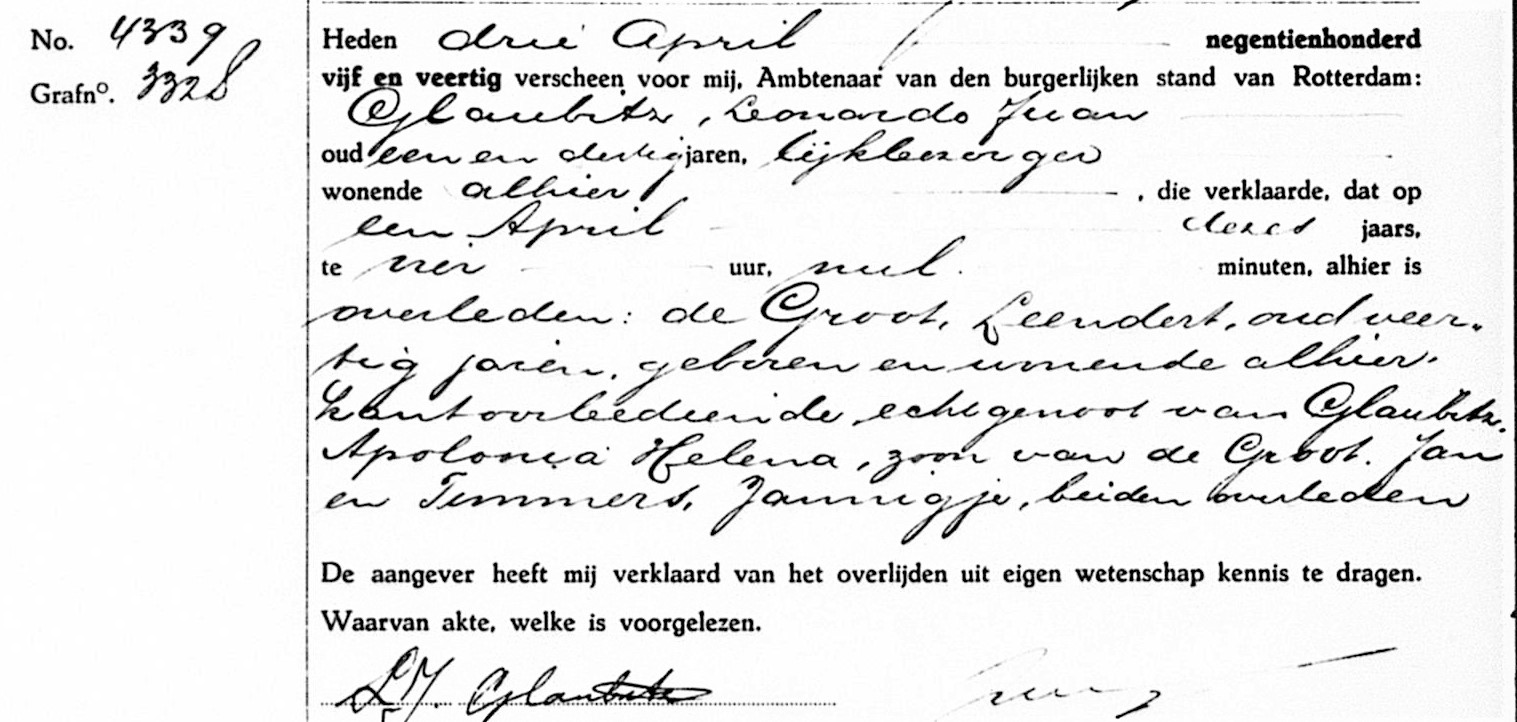 No. 4339
Grafnº. 3328
Heden drie April negentienhonderd
vijf en veertig verscheen voor mij, Ambtenaar van den burgerlijken stand van Rotterdam:
Glaubitz, Leonardo Juan
oud een en dertig jaren, lijkbezorger
wonende alhier, die verklaarde, dat op
een April dezes jaars,
te vier uur, nul minuten, alhier is
overleden: de Groot, Leendert, oud veer-
tig jaren, geboren en wonende alhier,
kantoorbediende, echtgenoot van Glaubitz,
Apolonia Helena, zoon van de Groot, Jan
en Timmers, Jannigje, beiden overleden
De aangever heeft mij verklaard van het overlijden uit eigen wetenschap kennis te dragen.
Waarvan akte, welke is voorgelezen.
L.J. Glaubitz